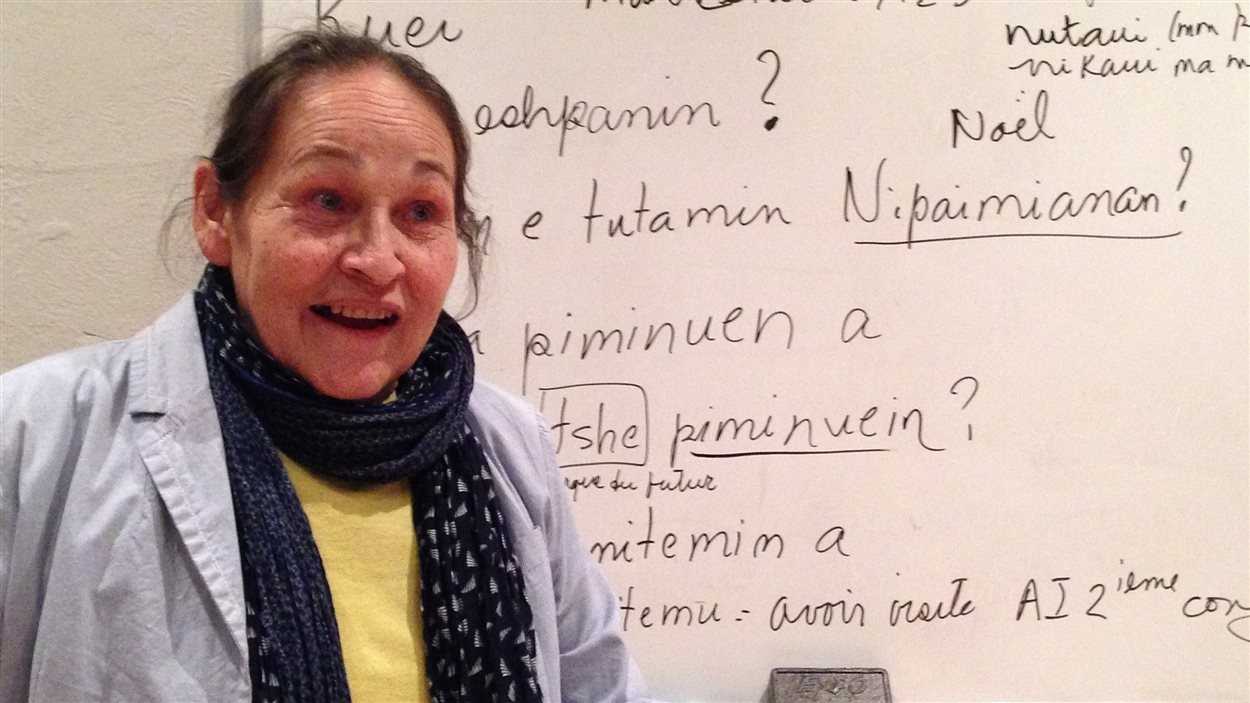 Kuei
nutaui
nikaui ma
eshpanin ?
Noël
n e tutamin Nipaimianan?
a piminuen a
tshe piminuein ?
que du futur
nitemin a
temu = avoir visite AI 2ieme con
EXPO